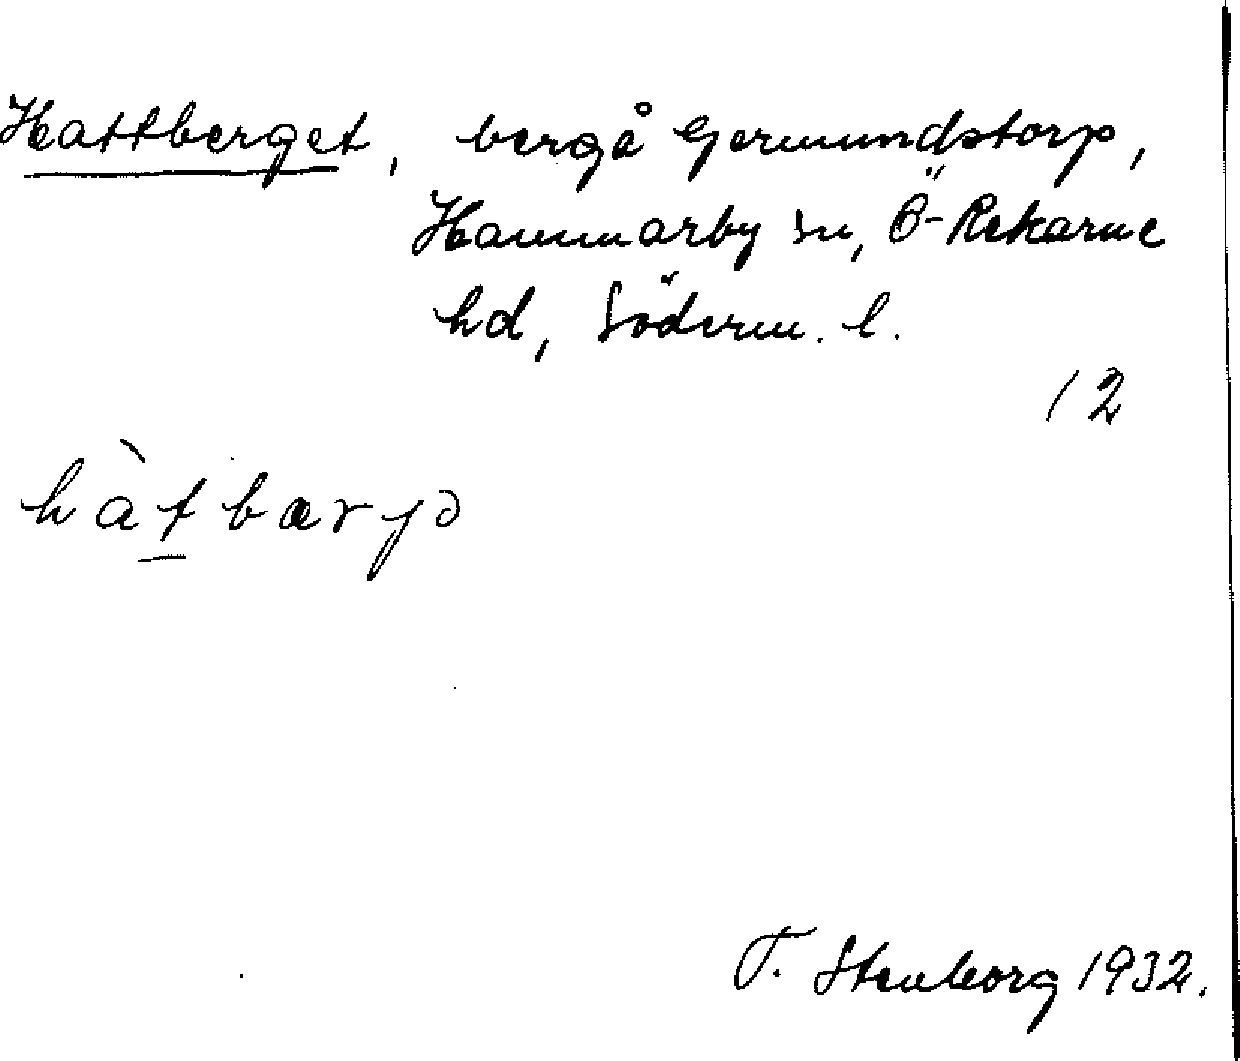 Hattberget, berg å Germundstorp,
Hammarby sn, Ö-Rekarne
hd, Söderm. l.
12
hàt̠bærjə
T. Stenborg 1932.